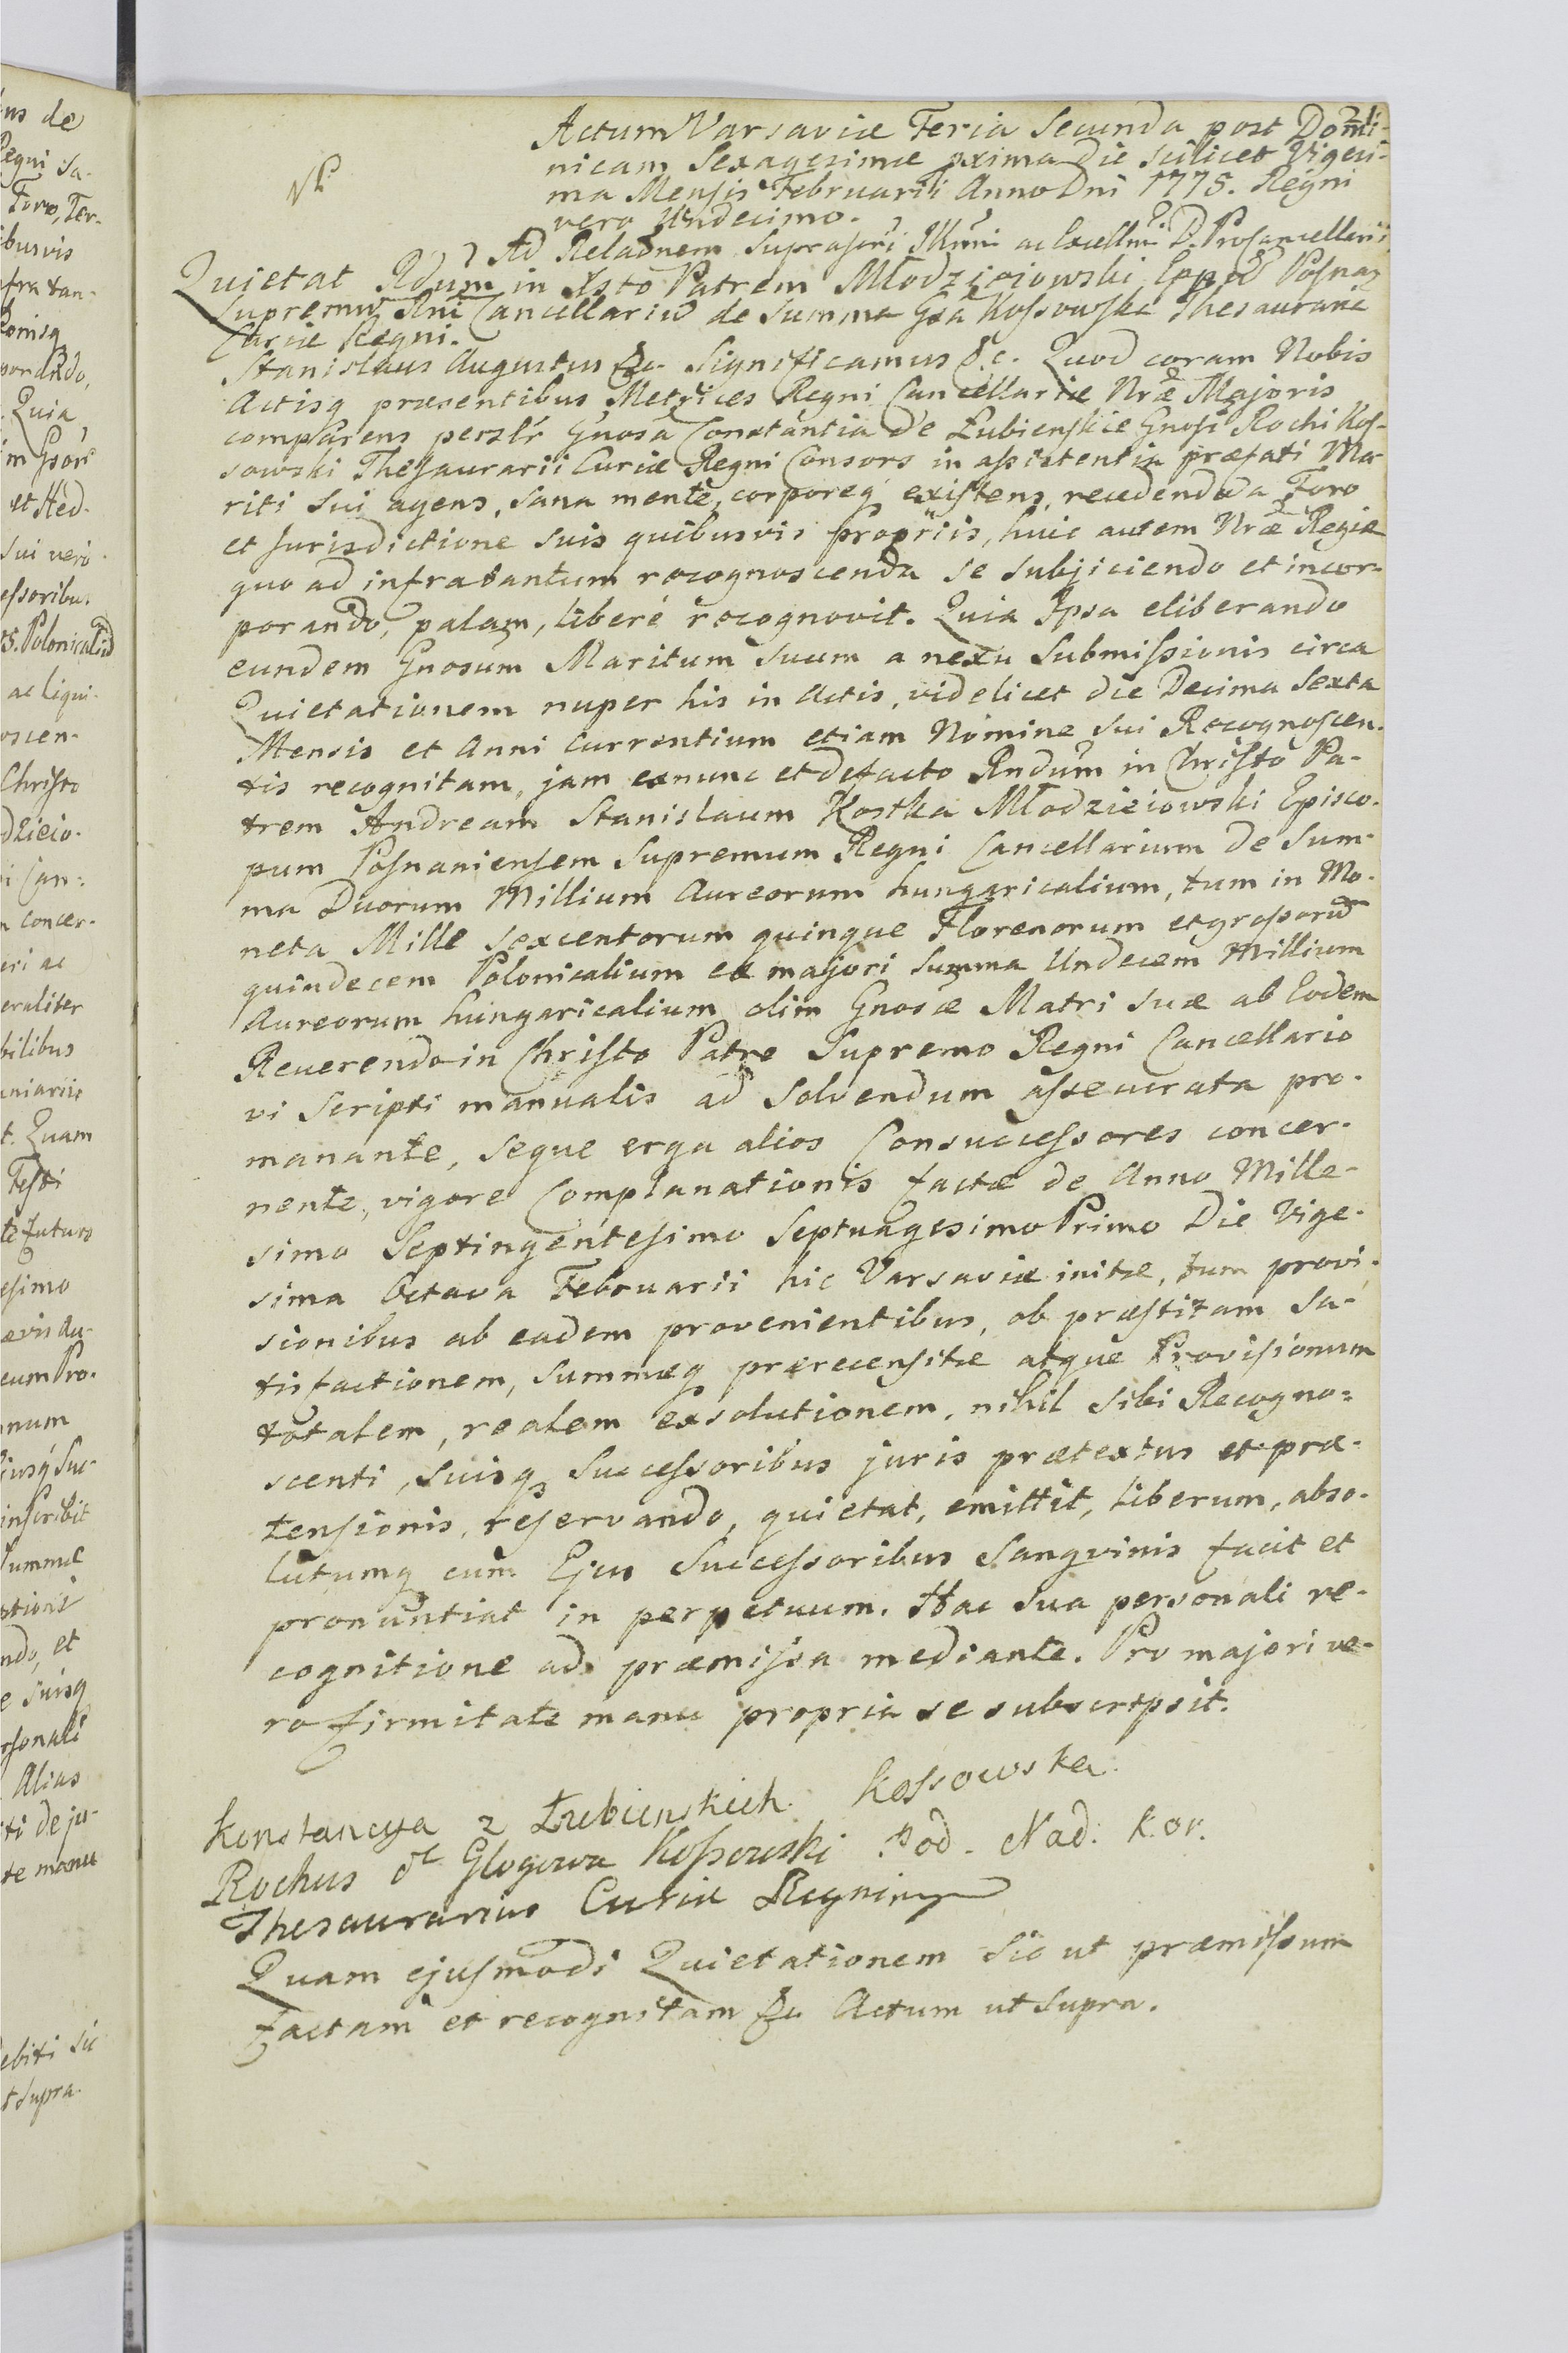 Actum Varsaviæ Feria Secunda post Domi-
nicam Sexagesimæ pxima Die scilicet Vigesi-
ma Mensis Februarii Anno Dni 1775. Regni
vero Undecimo.
Ad Relaõnem supraferi Illmi ac Excellmi D. Procancellarii
Quietat Rdum in Xsto Patrem Młodzieiowski Eppũ Posnaň
Supremũ Rni Cancellariũ de Summa Gsa Kossowska Thesauraria
Curiæ Regni.
Stanislaus Augustus &c. Significamus &c. Quod coram Nobis
Actisq præsentibus Metrices Regni Cancellariæ Nræ Majoris
comparens persl̃r Gnosa Constantia de Łubienskie Gnosi Rochi Kos-
sowski Thesaurarii Curiæ Regni Consors in assistentia præfati Ma-
riti sui agens, sana mente, corporeq existens, recedendo a Foro
et Jurisdictione suis quibusvis propriis, huic autem Nræ Regiæ
quo ad infra tantum recognoscenda se subjiciendo et incor-
porando, palam, libere recognovit. Quia Ipsa eliberando
eundem Gnosum Maritum suum a nexu Submissionis circa
Quietationem nuper his in Actis, videlicet die Decima Sexta
Mensis et Anni Currentium etiam Nomine sui Recognoscen-
tis recognitam, jam exnunc et defacto Rndum in Christo Pa-
trem Andream Stanislaum Kostka Młodzieiowski Episco-
pum Posnaniensem Supremum Regni Cancellarium de Sum-
ma Duorum Millium Aureorum hungaricalium, tum in Mo-
neta Mille Sexcentorum quinque Florenorum et grossorũ
quindecem Polonicalium ex majori Summa Undecem Millium
Aureorum hungaricalium olim Gnosæ Matri suæ ab Eodem
Reverendo in Christo Patre Supremo Regni Cancellario
vi Scripti manualis ad solvendum assecurata pro-
manante, seque erga alios Consuccessores concer-
nente, vigore Complanationis factæ de Anno Mille-
simo Septingentesimo Septuagesimo Primo Die Vige-
sima Octava Februarii hic Varsaviæ initæ, tum provi-
sionibus ab eadem provenientibus, ob præstitam sa-
tisfactionem, Summæq prærecensitæ atque Provisionum
totalem, realem exsolutionem, nihil sibi Recogno-
scenti, suisq Successoribus juris prætextus et præ-
tensionis, reservando, quietat, emittit, liberum, abso-
lutumq cum Ejus Successoribus Sangvinis facit et
pronuntiat in perpetuum. Hac sua personali re-
cognitione ad præmissa mediante. Pro majori ve-
ro firmitate manu propria se subscripsit.
Konstancya z Łubienskich Kossowska
Pod. Nad. Kor.
Rochus de Glogowa Kossowski
Thesaurarius Curiæ Regni mp
Quam ejusmodi Quietationem sic ut præmissum
factam et recognitam &c Actum ut supra.